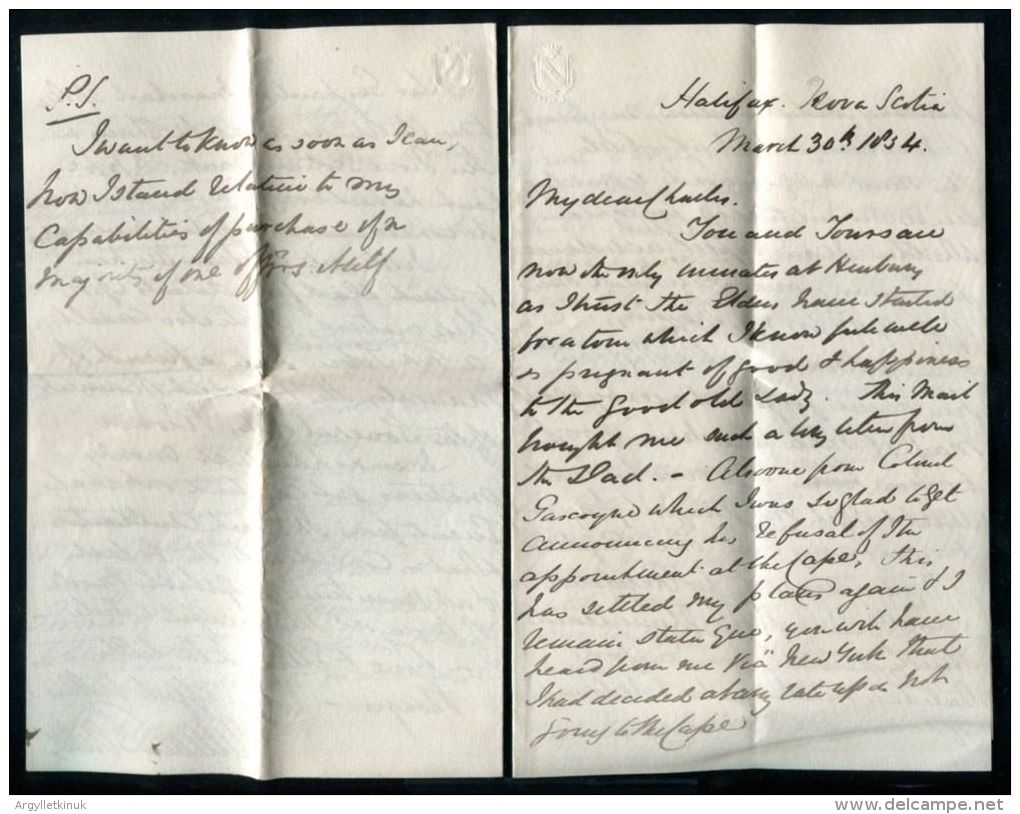 P.S.
I want to know as soon as I can,
how I stand relative to my
Capabilities of purchase of a
majority if one offers itself
Halifax. Nova Scotia
March 30th 1854.
My dear Charles.
You and
now the only inmates at Henbury
as I trust the Elders have started
for a tour which I know full well
is pregnant of good & happiness
to the good old Lady. This Mail
brought me such a long letter from
the Dad. - Also one from Colonel
Gascoyne which I was so glad to get
announcing his refusal of the
appointment at the Cape, This
has settled my plans again & I
remain statu quo, you will have
heard from me Via New York that
I had decided at any rate upon not
going to the Cape
Argylletkinuk
www.delcampe.net